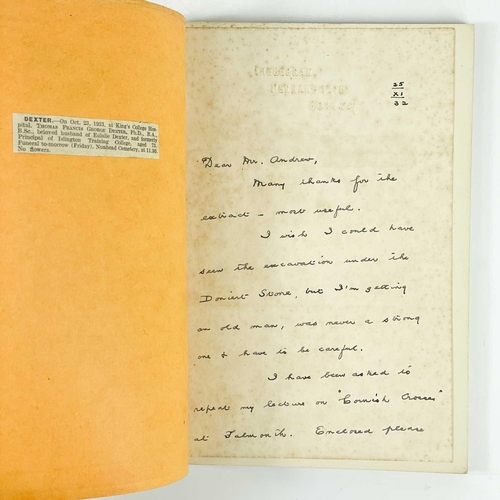 DEXTER.—On Oct. 25, 1933, at King's College Hos-
pital, THOMAS FRANCIS GEORGE DEXTER, Ph.D., B.A.,
B.Sc., beloved husband of Eulalie Dexter, and formerly
Principal of Islington Training College, aged 73.
Funeral to-morrow (Friday), Nunhead Cemetery, at 11.30.
No flowers.
25
XI
32
Dear Mr. Andrew,
Many thanks for the
extract – most useful.
I wish I could have
seen the excavation under the
Doniert Stone, but I'm getting
an old man, was never a strong
one & have to be careful.
I have been asked to
repeat my lecture on "Cornish Crosses"
at Falmouth. Enclosed please